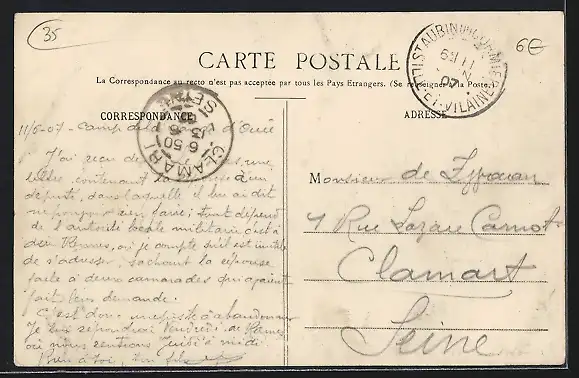 35
6€
CARTE POSTALE
La Correspondance au recto n'est pas acceptée par tous les Pays Etrangers. (Se renseigner à la Poste.
ST AUBIN DU CORMIER
11
07
ILLE-ET-VILAINE
CORRESPONDANCE
ADRESSE
CLAMART
6 50
13
SEINE
11/6-07 - Camp de la d'Ouée
J'ai reçu de une
lettre contenant la réponse d'un
député, dans laquelle il lui a dit
ne pouvoir rien faire ; tout dépend
de l'autorité locale militaire c'est à
dire Rennes, où je compte qu'il est inutile
de s'adresser, sachant la réponse
faite à deux camarades qui avaient
fait leur demande.
C'est donc une piste à abandonner
Je lui répondrai Vendredi de Rennes
où nous rentrons Jeudi à midi
Bien à toi, ton fils
Monsieur de
7 Rue Lazare Carnot
Clamart
Seine